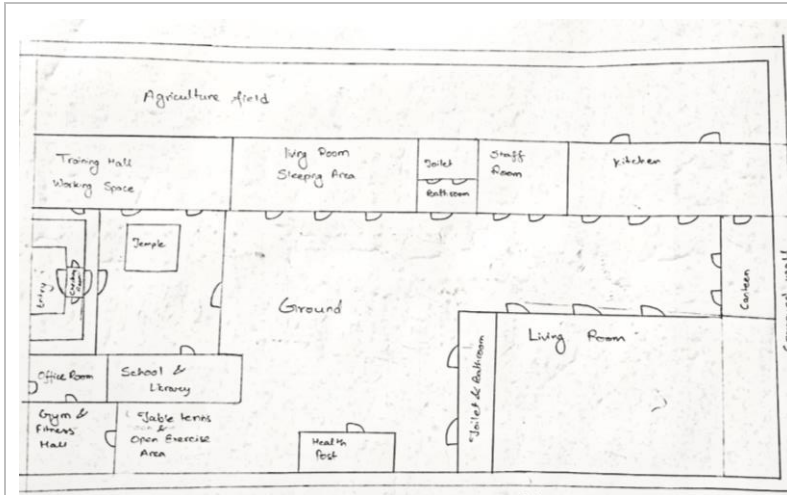 Agriculture field
Training Hall
Working Space
living Room
Sleeping Area
Toilet
Bathroom
Staff
Room
Kitchen
Temple
Entry
Ground
Canteen
Living Room
Toilet & Bathroom
Office Room
School &
Library
Gym &
Fitness
Hall
Table tenns
&
Open Exercise
Area
Health
Post